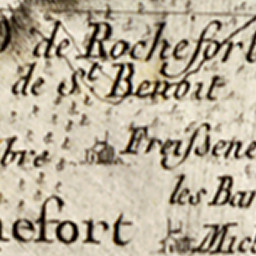 de Rochefort
de St. Benoit
bre
Freissene
les Bar
efort
Mic